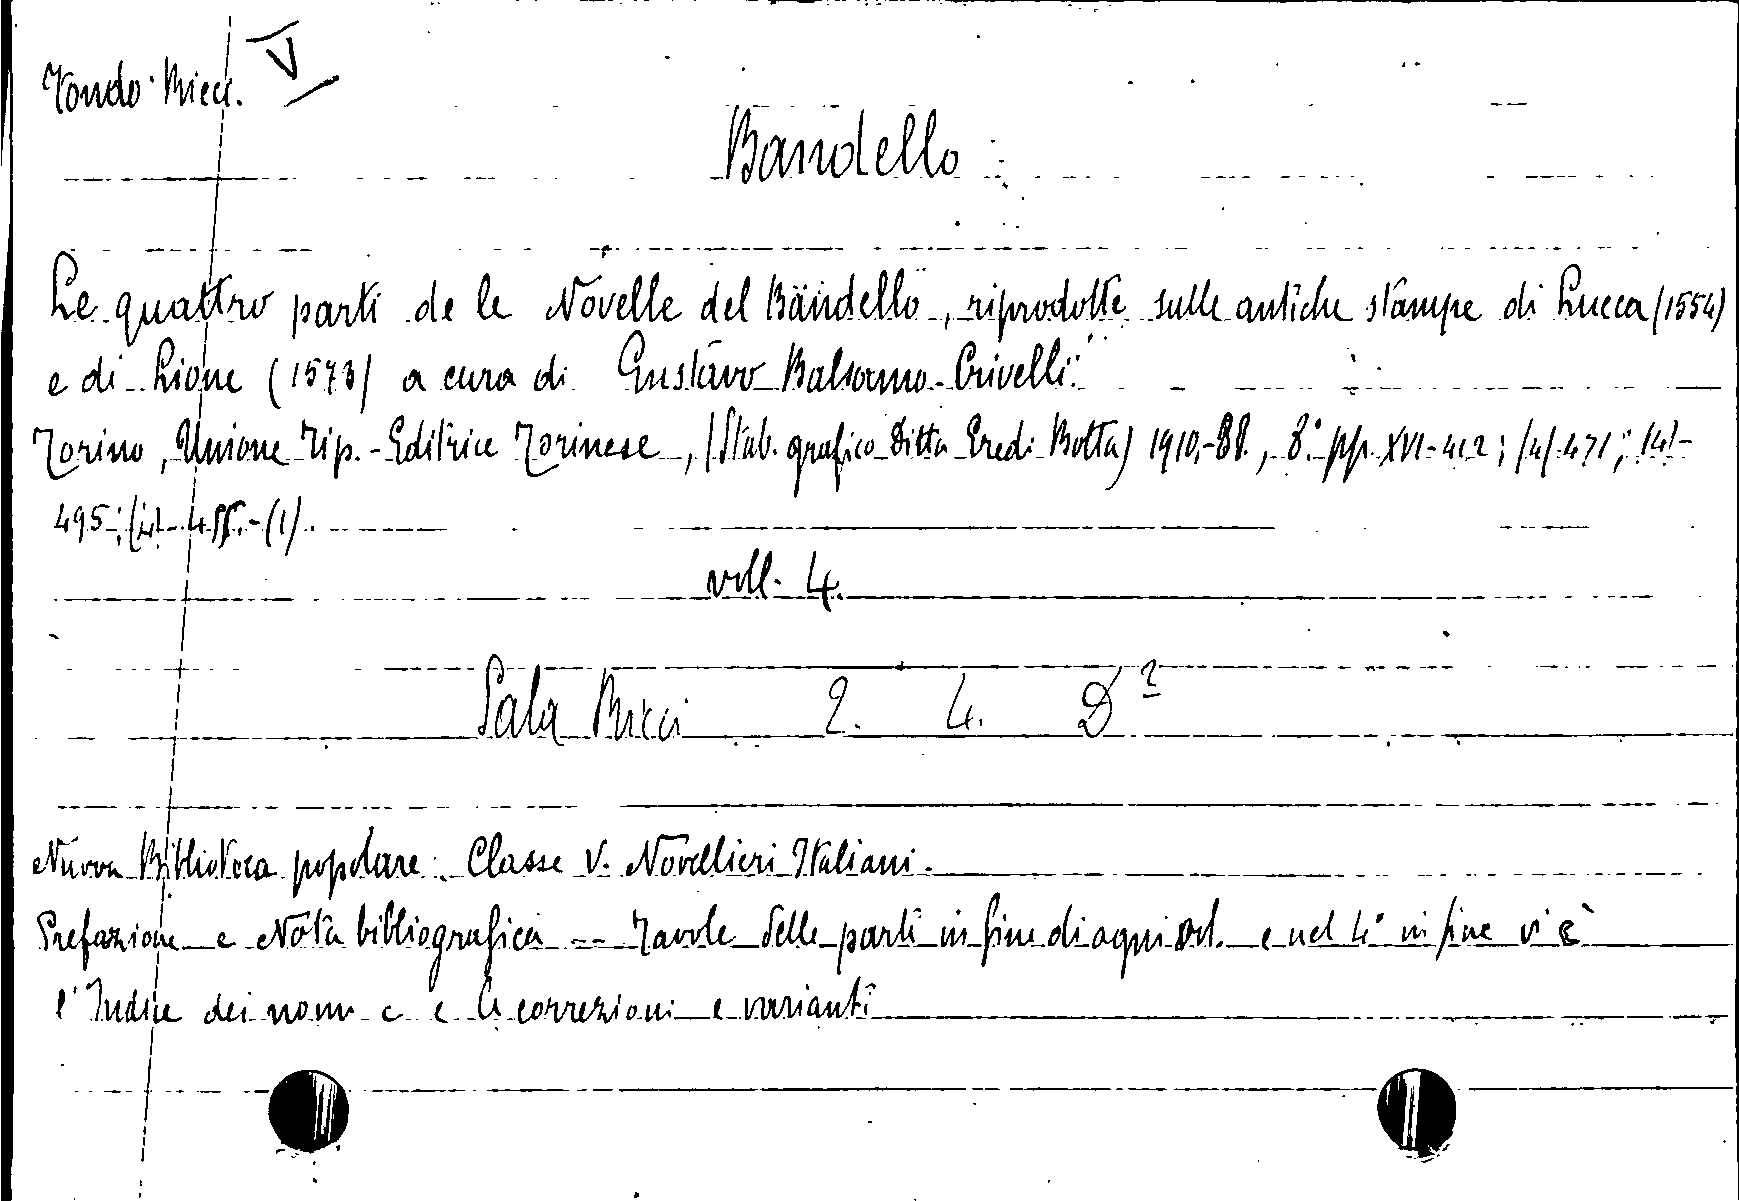 Fondo Ricci. V
Bandello
Le quattro parti de le Novelle del Bandello, riprodotte sulle antiche stampe di Lucca (1554)
e di Lione (1573) a cura di Gustavo Balsamo-Crivelli.
Torino, Unione Tip.-Editrice Torinese, (Stab. grafico Ditta Eredi Botta) 1910-, 8.° pp. XVI-412; (4) 471; (4)-
495; (4)- -(1).
voll. 4.
Sala Ricci 2. 4. D²
Nuova Biblioteca popolare. Classe V. Novellieri Italiani.
Prefazione e Nota bibliografica -- Tavole delle parti in fine di ogni vol. e nel 4° in fine vi è
l'Indice dei nomi e le correzioni e varianti